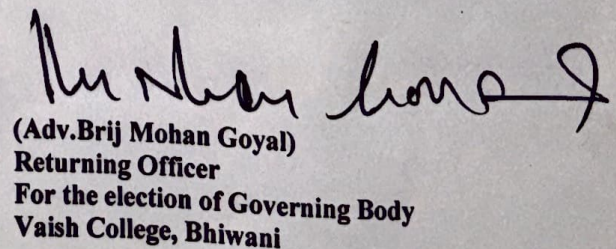 (Adv.Brij Mohan Goyal)
Returning Officer
For the election of Governing Body
Vaish College, Bhiwani